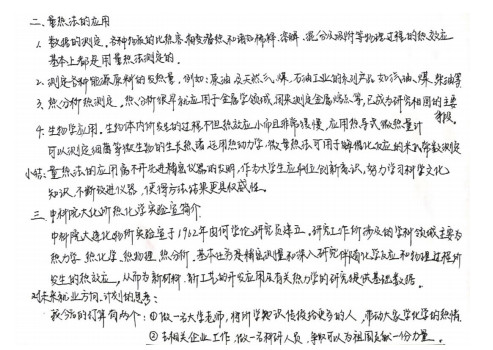 二、量热法的应用
1. 数据的测定。各种物质的比热容、相变潜热和诸如稀释、溶解、混合及吸附等物理过程的热效应
基本上都是用量热法测定的。
2. 测定各种能源原料的发热量。例如:原油及天然气、煤、石油工业的系列产品如汽油、煤、柴油等
3. 热分析热测定。热分析很早就应用于金属学领域,用来测定金属熔点等,已成为研究相图的主要手段。
4. 生物学应用。生物体内所发生的过程不但热效应小而且非常缓慢,应用热导式微热量计
可以测定细菌等微生物的生长热,运用热动力学,微热量法可用于酶催化反应的米氏常数测定
小结:量热法的应用离不开先进精密仪器的发明,作为大学生应树立创新意识,努力学习科学文化
知识,不断改进仪器,使得方法结果更具权威性。
三、中科院大化所热化学实验室简介
中科院大连化物所实验室于1962年由何学伦研究员建立。研究工作所涉及的学科领域主要为
热力学、热化学、热物理、热分析,基本任务是精密测量和深入研究伴随化学反应和物理过程所
发生的热效应,从而为新材料、新工艺的开发应用及有关热力学的研究提供基础数据。
对未来就业方向、计划的思考:
我今后的打算有两个:①做一名大学老师,将所学知识传授给更多的人,带动大家学化学的热情
②去相关企业工作,做一名科研人员,争取可以为祖国贡献一份力量。